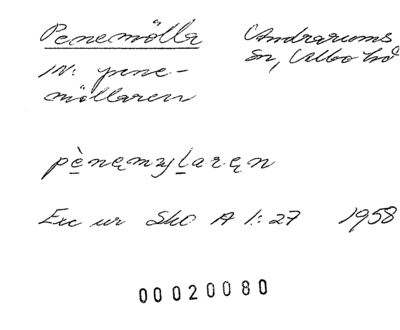 Penemölla Andrarums
sn, Albo hd
IN: pene-
möllaren
pènęmyḷaręn
Exc ur Sko A 1:27 1958
00020080